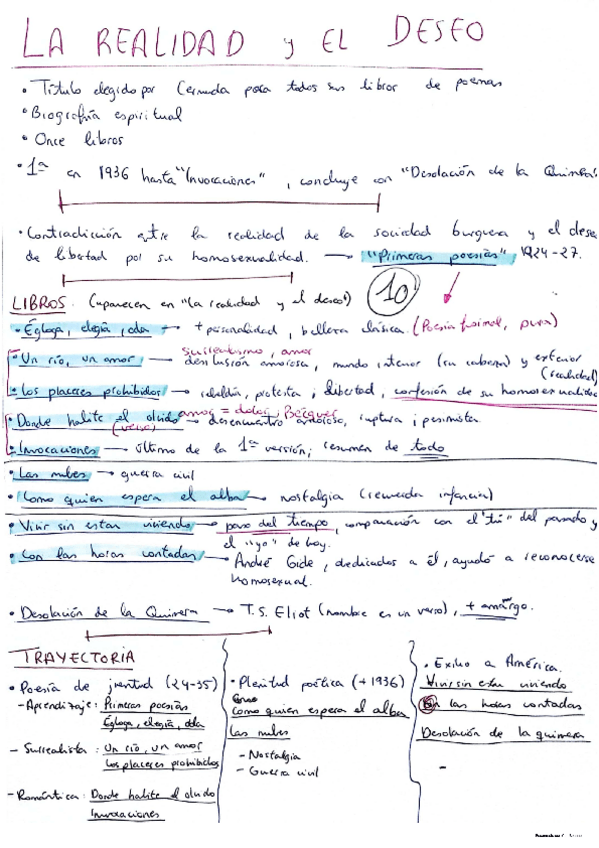 LA REALIDAD y EL DESEO
• Título elegido por Cernuda para todos sus libros de poemas
• Biografía espiritual
• Once libros
• 1ª en 1936 hasta "Invocaciones", concluye con "Desolación de la Quimera"
• Contradicción entre la realidad de la sociedad burguesa y el deseo
de libertad por su homosexualidad. → "Primeras poesías", 1924-27.
10
LIBROS. (aparecen en "La realidad y el deseo")
• Égloga, elegía, oda → + personalidad, belleza clásica. (Poesía formal, pura)
surrealismo, amor
• Un río, un amor → desilusión amorosa, mundo interior (su cabeza) y exterior
(realidad)
• Los placeres prohibidos → rebeldía, protesta; libertad, confesión de su homosexualidad
amor = dolor; Bécquer
• Donde habite el olvido → desencuentro amoroso, ruptura; pesimista.
(verso)
• Invocaciones → último de la 1ª versión; resumen de todo
• Las nubes → guerra civil
• Como quien espera el alba → nostalgia (recuerda infancia)
• Vivir sin estar viviendo → paso del tiempo, comparación con el "tú" del pasado y
el "yo" de hoy.
• Con las horas contadas → André Gide, dedicados a él, ayudó a reconocerse
homosexual.
• Desolación de la Quimera → T.S. Eliot (nombre es un verso), + amargo.
TRAYECTORIA
• Poesía de juventud (24-35)
- Aprendizaje: Primeras poesías
Égloga, elegía, oda
- Surrealista: Un río, un amor
Los placeres prohibidos
- Romántica: Donde habite el olvido
Invocaciones
• Plenitud poética (+1936)
Como quien espera el alba
Las nubes
- Nostalgia
- Guerra civil
• Exilio a América.
Vivir sin estar viviendo
Con las horas contadas
Desolación de la quimera
-